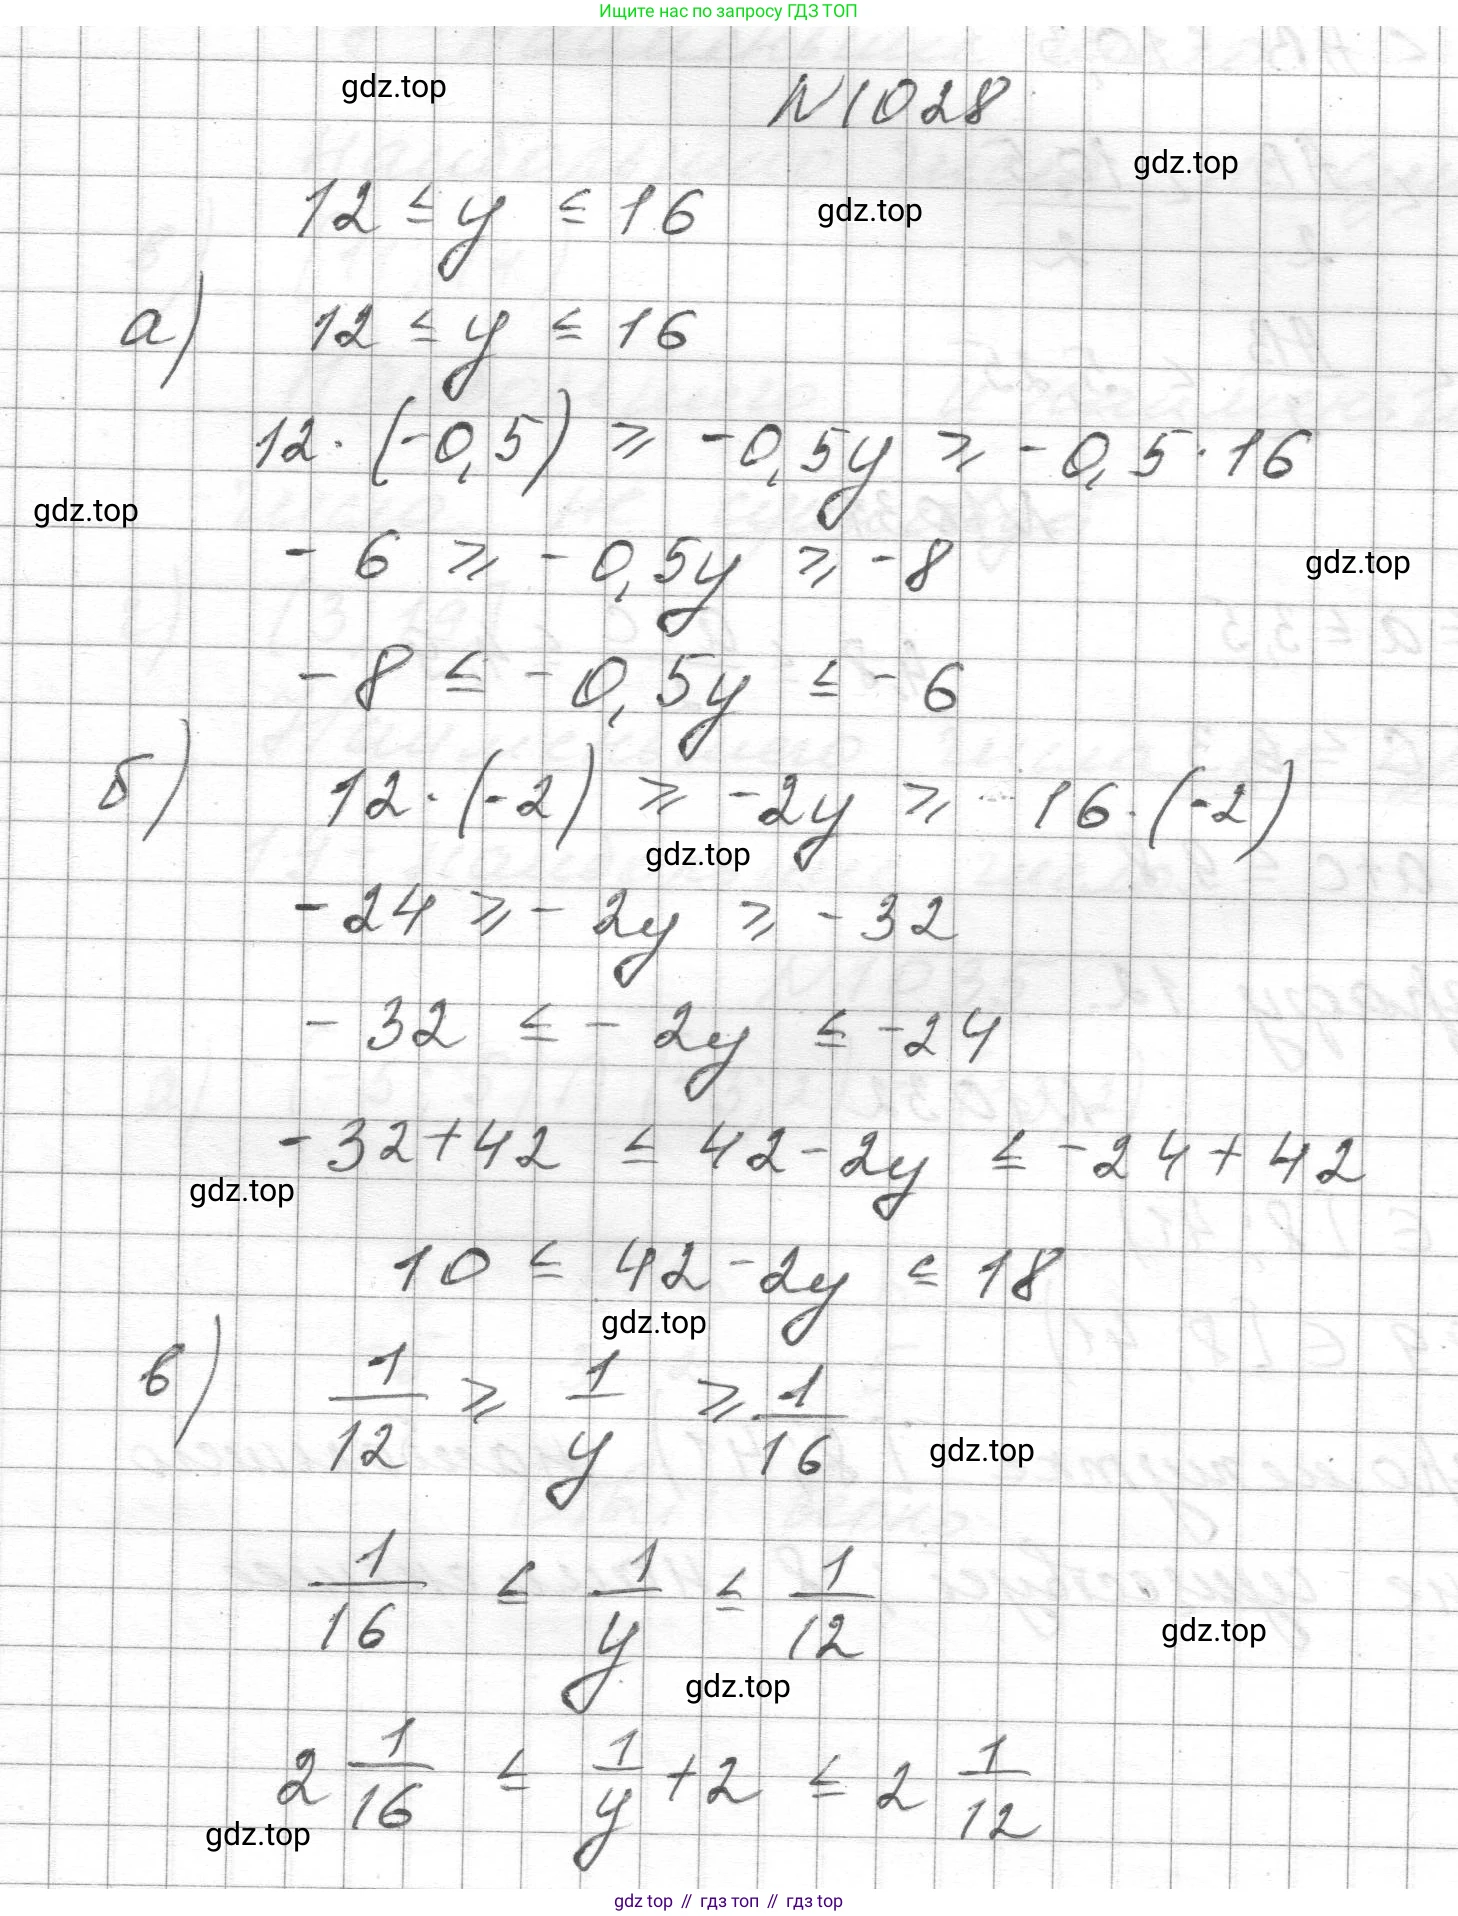 Ищите нас по запросу ГДЗ ТОП
gdz.top
N1028
gdz.top
12 ≤ y ≤ 16
gdz.top
а) 12 ≤ y ≤ 16
12 · (-0,5) ⩾ -0,5y ⩾ -0,5 · 16
gdz.top
-6 ⩾ -0,5y ⩾ -8
gdz.top
-8 ≤ -0,5y ≤ -6
б) 12 · (-2) ⩾ -2y ⩾ 16 · (-2)
gdz.top
-24 ⩾ -2y ⩾ -32
-32 ≤ -2y ≤ -24
-32+42 ≤ 42-2y ≤ -24+42
gdz.top
10 ≤ 42-2y ≤ 18
gdz.top
в) 1/12 ⩾ 1/y ⩾ 1/16
gdz.top
1/16 ≤ 1/y ≤ 1/12
gdz.top
gdz.top
2 1/16 ≤ 1/y + 2 ≤ 2 1/12
gdz.top
gdz top // гдз топ // гдз top